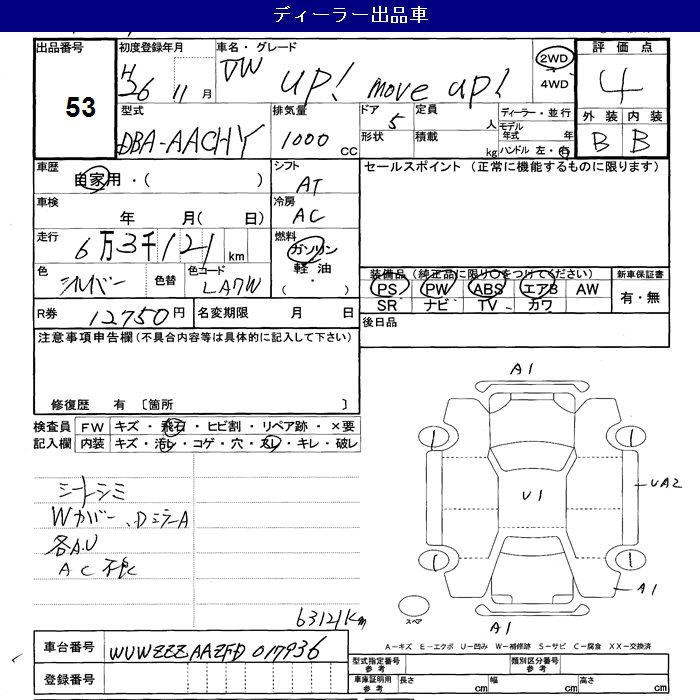 ディーラー出品車
出品番号 53
初度登録年月 H26 11月
車名・グレード VW up! move up!
2WD 4WD
評価点 4
型式 DBA-AACHY
排気量 1000 CC
ドア 5 定員 人
形状 積載 kg
ディーラー・並行
モデル年式 年
ハンドル 左・右
外装 内装
B B
車歴 自家用・( )
シフト AT
セールスポイント (正常に機能するものに限ります)
車検 年 月( 日)
冷房 AC
走行 6万3千121 km
燃料 ガソリン 軽油 ( ・ )
色 シルバー 色替 色コード LA7W
装備品(純正品に限り○をつけてください) 新車保証書
PS PW ABS エアB AW 有・無
SR ナビ TV カワ
R券 12750円 名変期限 月 日
後日品
注意事項申告欄(不具合内容等は具体的に記入して下さい)
修復歴 有 〔箇所 〕
検査員 FW キズ・飛石・ヒビ割・リペア跡・×要
記入欄 内装 キズ・汚レ・コゲ・穴・スレ・キレ・破レ
シートシミ
Wカバー、DミラーA
各A.U
AC不良
63121Km
A1
1 1
U1
UA2
1 1
A1
スペア
A1
A-キズ E-エクボ U-凹み W-補修跡 S-サビ C-腐食 XX-交換済
車台番号 WVWZZZAAZFD017936
登録番号
型式指定番号 参考 類別区分番号 参考
車庫証明用 参考 長さ cm 幅 cm 高さ cm